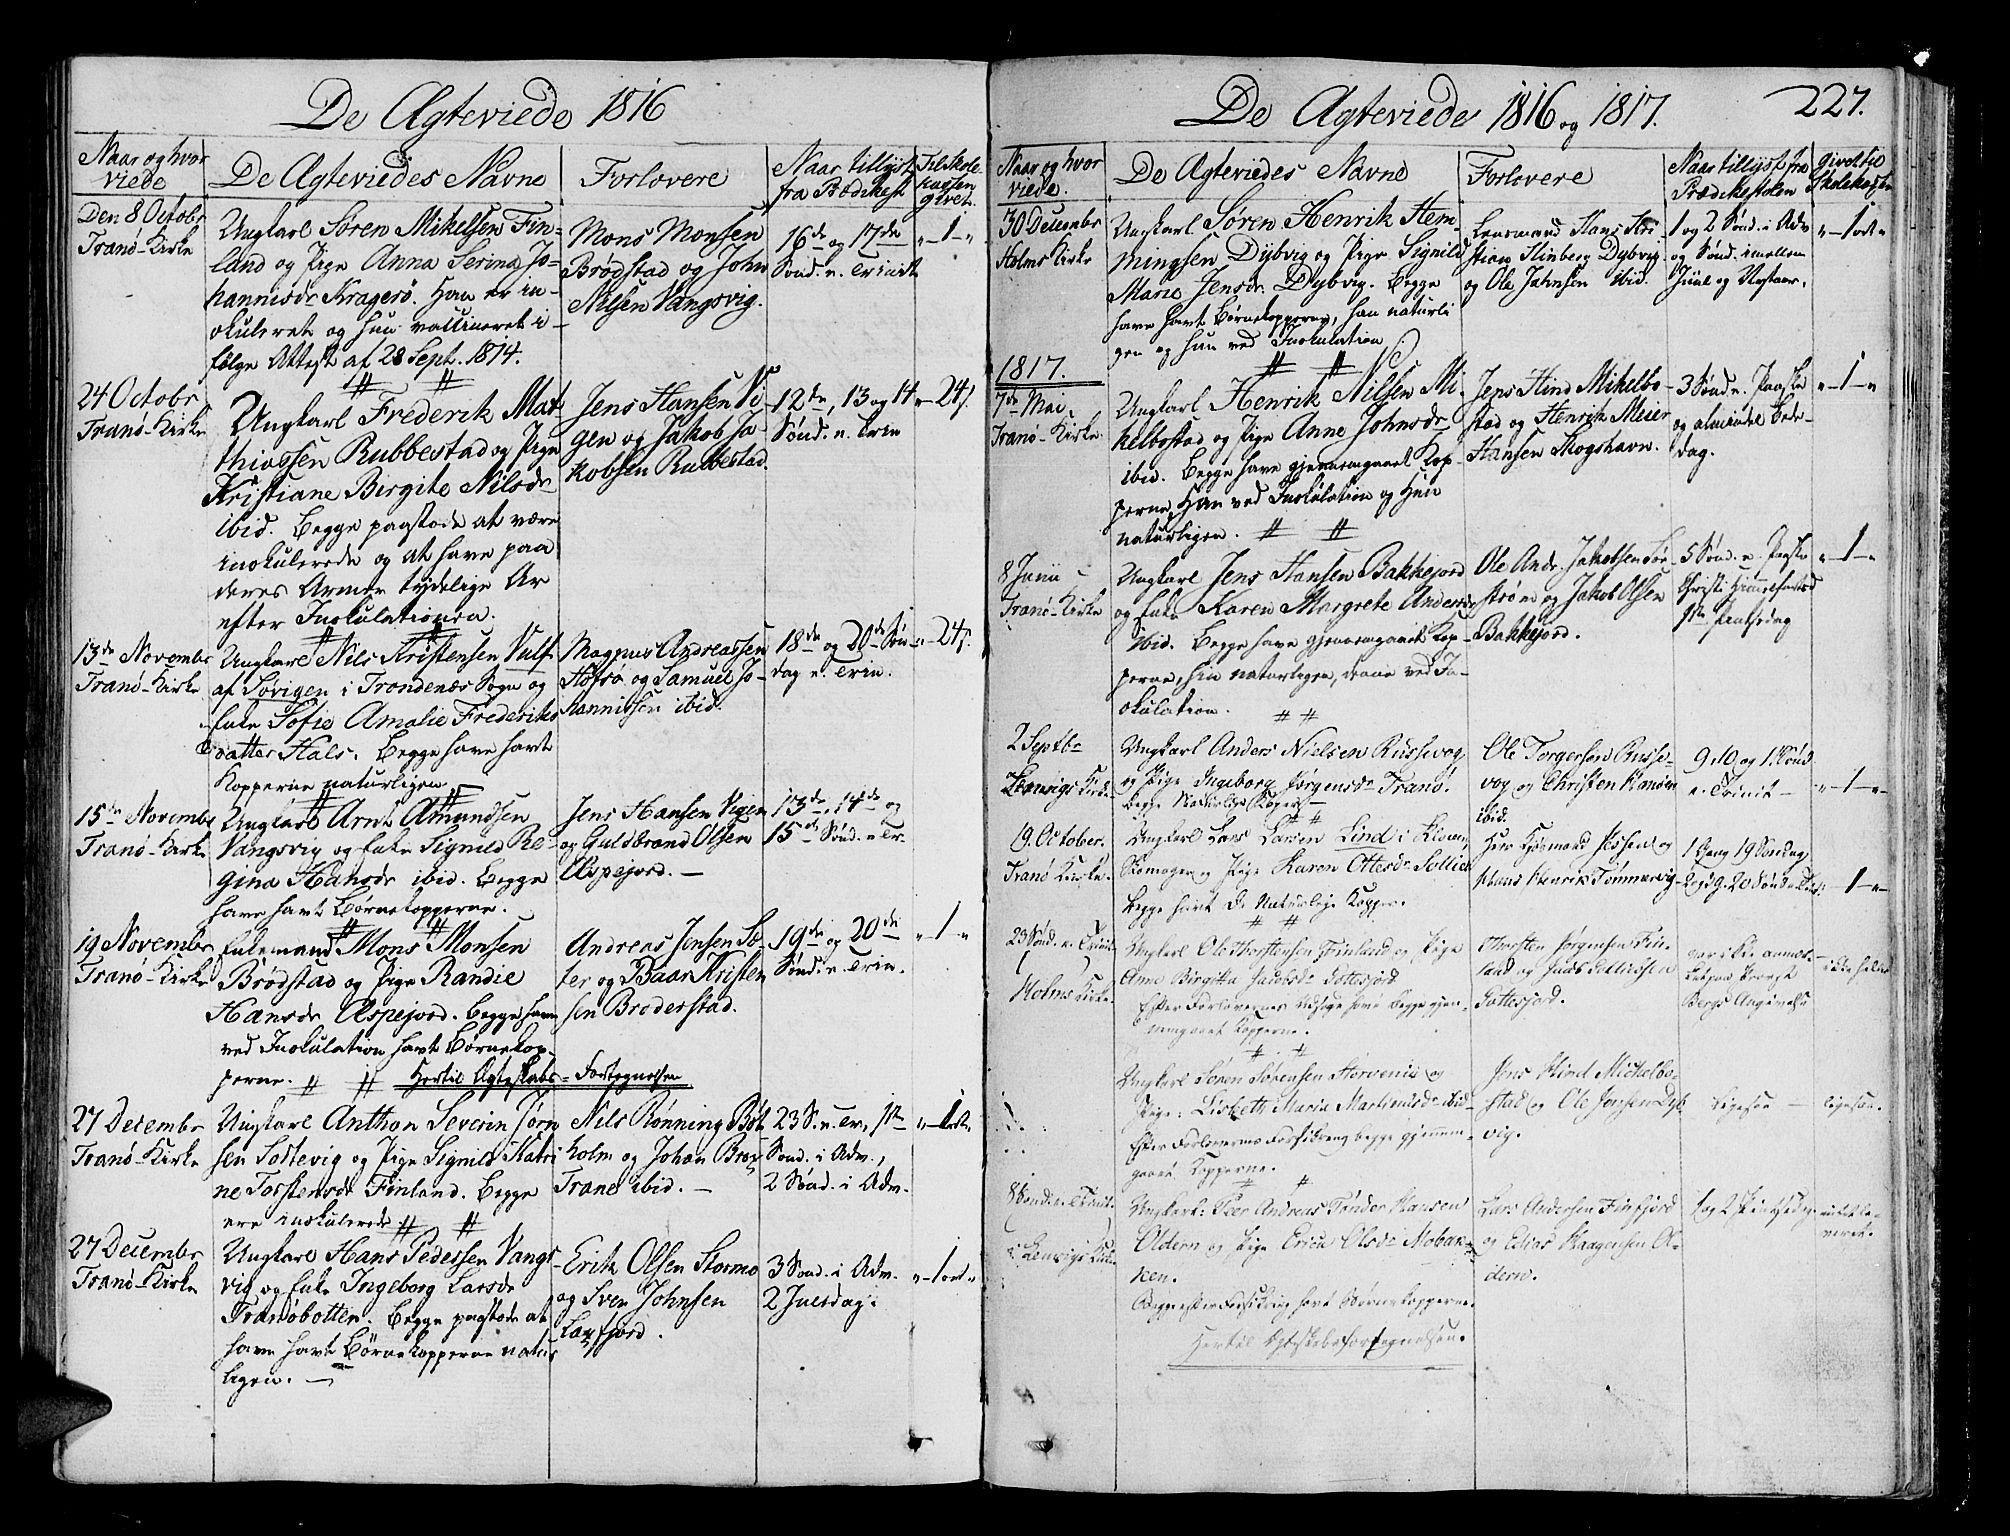 De Ægteviede 1816
Naar og hvor
viede
De Ægteviedes Navne
Forlovere
Naar tillyst
fra Prædikest
Til Skole-
kassen
givet.
Den 8 Octobr
Tranö-Kirke
Ungkarl Søren Mikelsen Fin-
land og Pige Anna Serina Jo-
hannisdr Kragerö. Han er in-
okuleret og hun vaccineret i-
følge Attest af 28 Sept. 1814.
Mons Monsen
Brödstad og John
Nilsen Vangsvig.
16de og 17de
Sönd. e. Trinit
"-1-"
24 Octobr
Tranö-Kirke
Ungkarl Frederik Mat-
thiassen Rubbestad og Pige
Kristiane Birgite Nilsdr
ibid. Begge paastode at være
inokulerede og at have paa
deres Arme tydelige Ar
efter Inokulationen.
Jens Hansen Vi-
gen og Jakob Ja-
kobsen Rubbestad.
12de, 13 og 14
Sönd. e. Trin
"-24s
13de Novembr
Tranö-Kirke
Ungkarl Nils Kristensen Vulf
af Sörvigen i Trondenæs Sogn og
Enke Sofie Amalie Frederiks
datter Hals. Begge have havt
Kopperne naturligen
Magnus Andreassen
Stofsö og Samuel Jo-
hannissen ibid.
18de og 20de Sön-
dag e. Trin.
"-24s.
15de Novembr
Tranö-Kirke
Ungkarl Arnt Amundsen
Vangsvig og Enke Signild Re-
gina Hansdr ibid. Begge
have havt Börnekopperne.
Jens Hansen Vigen
og Guldbrand Olsen
Aspejord. —
13de, 14de og
15de Sönd. e Tr.
19 Novembr
Tranö-Kirke
Enkemand Mons Monsen
Brödstad og Pige Randie
Hansdr Aspejord. Begge have
ved Inokulation havt Börnekop-
perne. Hertil Ægteskabs-Fortegnelsen
Andreas Jensen Sæ-
ter og Baar Kristen
sen Broderstad.
19de og 20de
Sönd. e. Trin.
"-1-"
27 Decembr
Tranö-Kirke
Ungkarl Anthon Severin Törn
sen Sostevig og Pige Signild Katri
ne Torstensdr Finland. Begge
ere inokulerede
Nils Rönning Böt
holm og Johan Brox
Trane ibid. —
23 S. e. Tr, 1ste
Sönd. i Adv.,
2 Sönd. i Adv.
"-1ort"
27 Decembr
Tranö-Kirke
Ungkarl Hans Pedersen Vangs-
vig og Enke Ingeborg Larsdr
Tranöbotten. Begge paastode at
have havt Börnekopperne natur
ligen. —
Erik Olsen Stormo
og Sven Johnsen
Laxfjord.
3 Sönd. i Adv.
2 Juledag.
"-1ort"
De Ægteviede 1816 og 1817.
227.
Naar og hvor
viede.
De Ægteviedes Navne
Forlovere
Naar tillyst fra
Prædikestolen
Givet til
Skolekassen
30 Decembr
Holms Kirke
Ungkarl Sören Henrik Hem-
mingsen Dybvig og Pige Signild
Marie Jensdr. Dybvig. Begge
have havt Börnekopperne, han naturli
gen og hun ved Inokulation
Lensmand Hans Kri-
stian Hinberg Dybvig
og Ole Johnsen ibid.
1 og 2 Sönd. i Adv
og Sönd. imellem
Juul og Nytaar.
"-1ort"
1817.
7de Mai
Tranö-Kirke
Ungkarl Henrik Nilsen Mi-
kelbostad og Pige Anne Johnsdr
ibid. Begge have gjennemgaaet Kop-
perne, Han ved Inokulation og Hun
naturligen.
Jens Hind Mikelbo-
stad og Henrik Meier
Hansen Skogshavn.
3 Sönd. e. Paaske
og almindel. Bede-
dag.
"-1-"
8 Junii
Tranö-Kirke
Ungkarl Jens Hansen Bakkejord
og Enke Karen Margrete Andersdr
ibid. Begge have gjennemgaaet Kop-
perne, hun naturligen, denne ved In-
okulation.
Ole Andr. Jakobsen Sör-
ström og Jakob Olsen
Bakkejord.
5 Sönd. e. Paaske
Christi Himmelfartsd
1ste Pintsedag
"-1-"
2 Septbr
Lenvigs Kirke
Ungkarl Anders Nielsen Russevog
og Pige Ingeborg Jørgensdr Tranö.
begge Naturlige Koper —
Ole Torgersen Russe-
vog og Christen Hansen
ibid.
9, 10 og 11 Sönd
e. Trinit —
"-1-"
19. October.
Tranö Kirke.
Ungkarl Lars Larsen Lind i Kleven
Komager og Pige Karen Ottesdr Sollien
begge havt de Naturlige Kopper.
Herr Kjöbmand Jessen og
Hans Henrik Tömmervig
1 Gang 19 Söndag
"-1-"
23 Sönd. e. Trinit.
Holms Kirke.
Ungkarl Ole Thorstensen Finland og Pige
Ane Birgitta Jacobsdr Gottesjord
Efter Forlovernes Udsigt have begge gjen-
nemgaaet Kopperne.
Thorsten Jørgensen Fin-
land og
Gottesjord.
var ikke annot-
Bergs Angivelse
ikke heller
Ungkarl Soren Sörensen Horvenie og
Pige: Lisbeth Maria Martinusdr ibid-
Efter Forlovernes Forsikring begge gjennem-
gaaet Kopperne.
Jens Hind Michelbo-
stad og Ole Jensen Dyb
vig.
ligesaa —
ligesaa.
8 Sönd. e. Trinit.
i Lenvigs Kirke
Ungkarl: Peer Andreas Tönder Hansen
Oldern og Pige Erica Olsdr Nobak-
ken.
Begge efter Forsikring havt Børnekopperne.
Hertil Ægteskabsfortegnelsen.
Lars Andersen Finfjord
og Elias Haagensen Ol-
dern.
1 og 2 Pintsedag